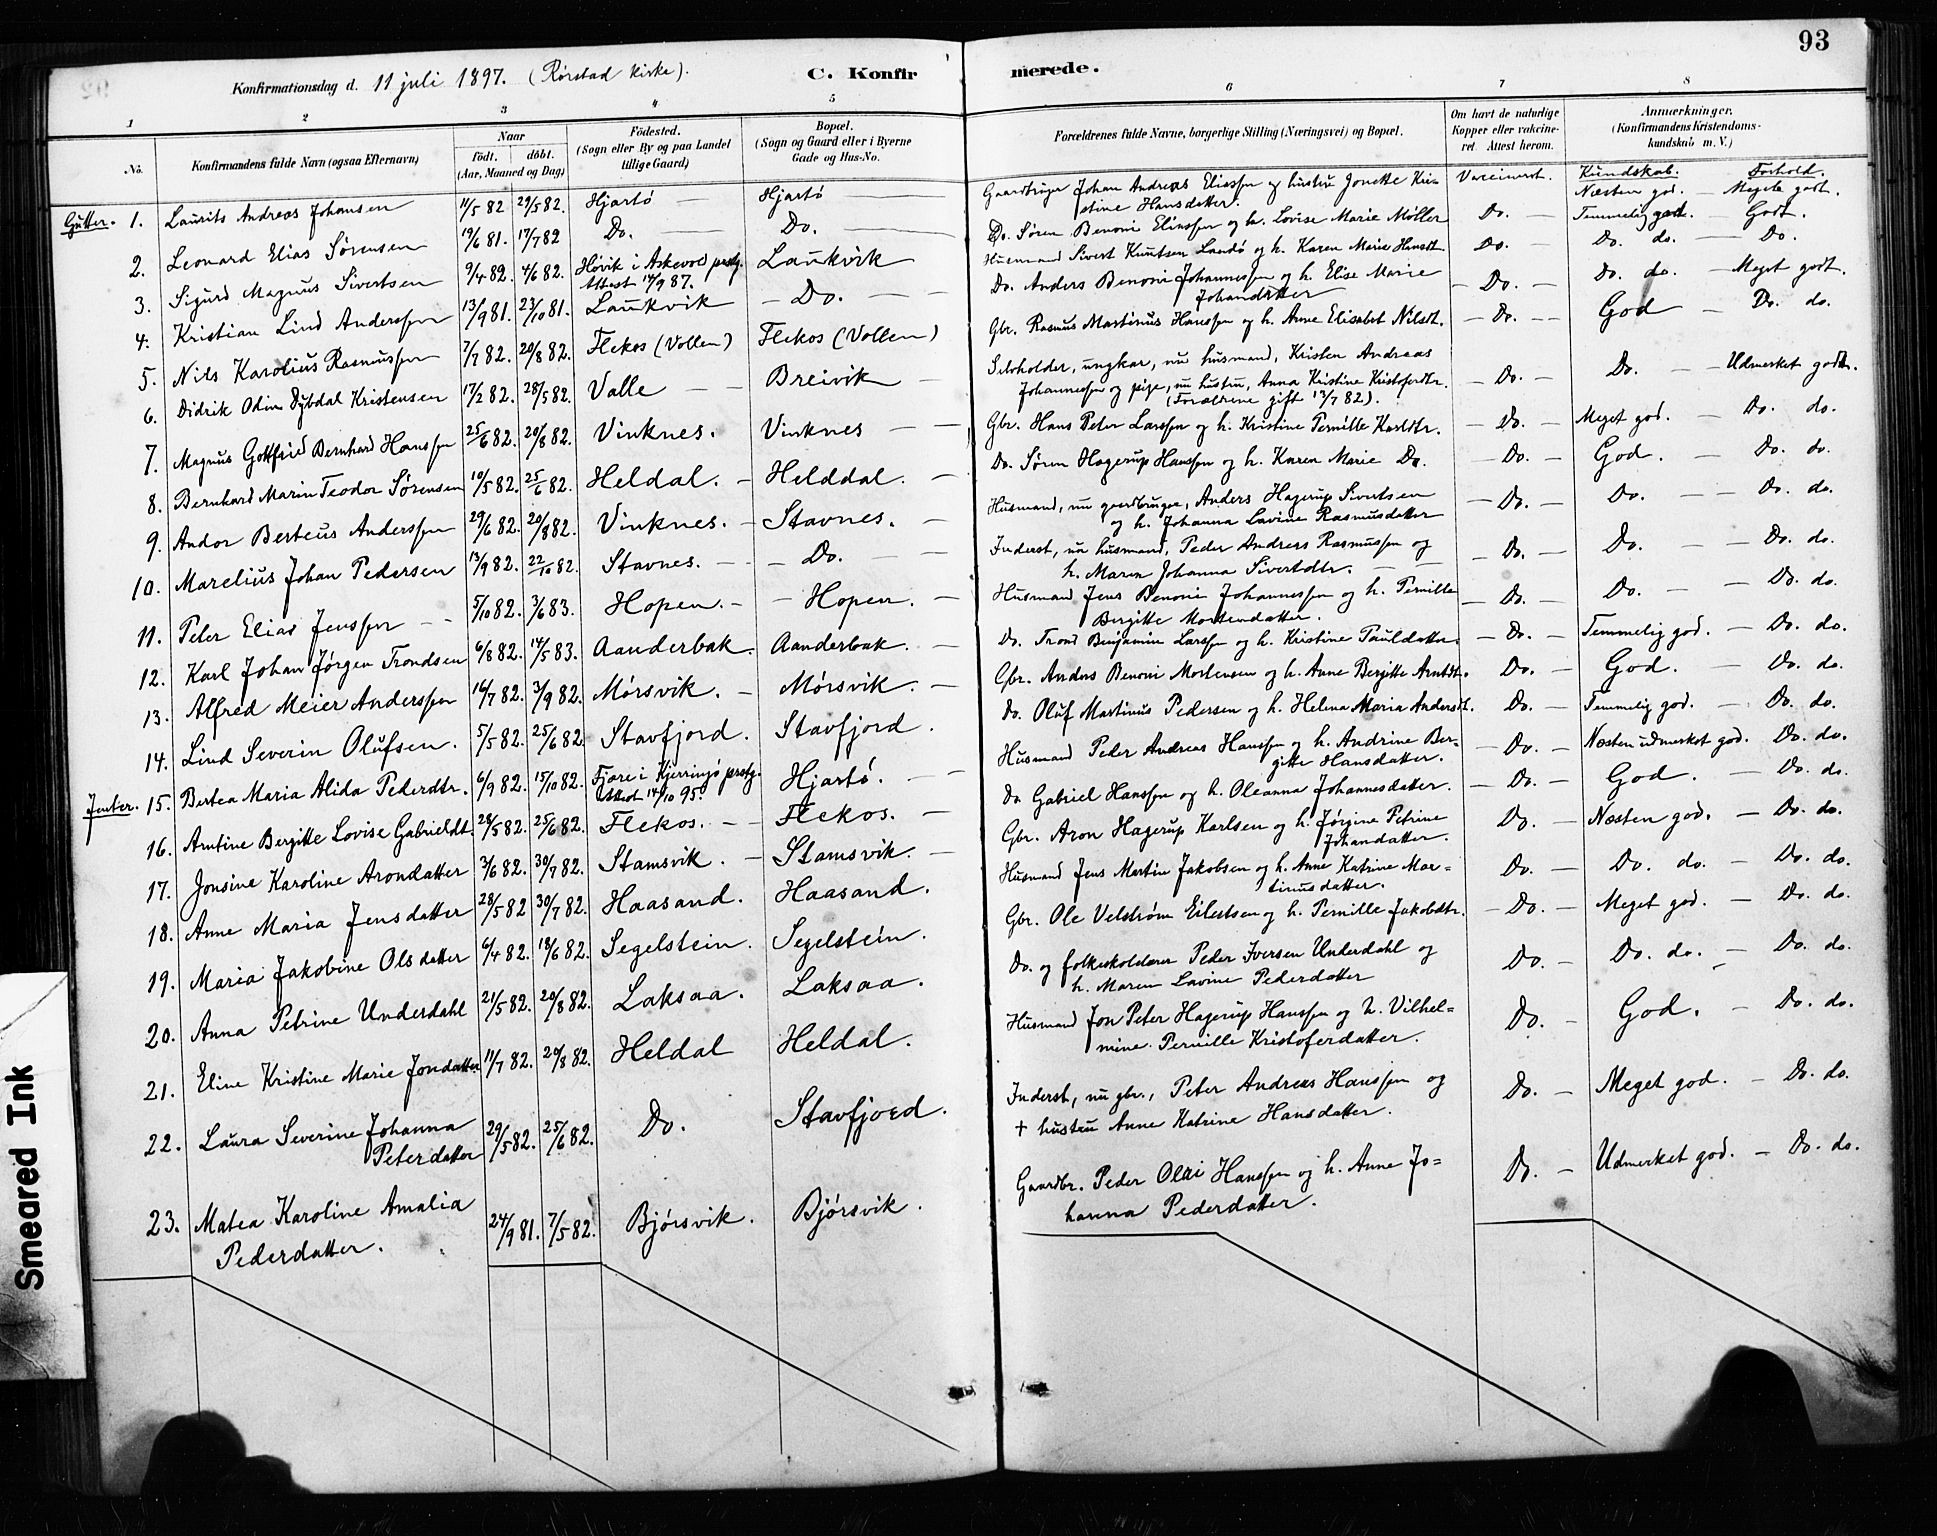 93
Konfirmationsdag d. 11 juli 1897. (Rørstad kirke).
C. Konfirmerede.
1 2 3 4 5 6 7 8
No.
Konfirmandens fulde Navn (ogsaa Efternavn)
Naar
født. døbt.
(Aar, Maaned og Dag)
Fødested.
(Sogn eller By og paa Landet
tillige Gaard)
Bopæl.
(Sogn og Gaard eller i Byerne
Gade og Hus-No.
Forældrenes fulde Navne, borgerlige Stilling (Næringsvei) og Bopæl.
Om havt de naturlige
Kopper eller vakcine-
ret. Attest herom.
Anmærkninger.
(Konfirmandens Kristendoms-
kundskab m. V.)
Kundskab. Forhold.
Gutter. 1. Laurits Andreas Johansen 11/5 82 29/5 82. Hjartø Hjartø Gaardbruger Johan Andreas Eliassen og hustru Jonette Kri-
stine Hansdatter. Vaccineret. Næsten god. – Meget godt.
2. Leonard Elias Sørensen 19/6 81. 17/7 82 Do. Do. Do. Søren Benoni Eliassen og h. Lovise Marie Møller Do. Temmelig god. Godt.
3. Sigurd Magnus Sivertsen 9/4 82. 4/6 82. Høvik i Askevold prstg.
Attest 14/9 87. Laukvik Husmand Sivert Knutsen Landø og h. Karen Marie Hansdt. Do. Do. do. – Do.
4. Kristian Lind Anderssen 13/9 81. 23/10 81. Laukvik – Do. Do. Anders Benoni Johannessen og h. Elise Marie
Johansdatter – Do. – Do. do. – Meget godt.
5. Nils Karolius Rasmussen 7/7 82. 20/8 82. Flekos (Vollen) Flekos (Vollen) Gbr. Rasmus Martinus Hanssen og h. Anne Elisabet Nilsdt. – Do. – God – Do. do.
6. Didrik Odin Dybdal Kristensen 17/2 82. 28/5 82. Valle Breivik Selvholder, ungkar, nu husmand, Kristen Andreas
Johannessen og pige, nu hustru, Anna Kristine Kristoferdtr.
(Forældrene gift 13/7 82). – Do. – Do. – Udmerket godt.
7. Magnus Gottfried Bernhard Hanssen 25/6 82. 20/8 82. Vinknes. Vinknes Gbr. Hans Peter Larssen og h. Kristine Pernille Karldtr. – Do. – Meget god. – Do. do.
8. Bernhard Marin Teodor Sørensen 10/5 82. 25/6 82. Heldal. – Helddal. Do. Søren Hagerup Hanssen og h. Karen Marie Do. – Do. – God. – Do. do.
9. Andor Berteus Anderssen 29/6 82. 20/8 82. Vinknes. – Stavnes. Husmand, nu gaardbruger, Anders Hagerup Sivertsen
og h. Johanna Lavine Rasmusdatter – Do. – Do. – Do. do.
10. Marelius Johan Pedersen 13/9 82. 22/10 82. Stavnes. – Do. Inderst, nu husmand, Peder Andreas Rasmussen og
h. Maren Johanna Sivertdtr. – Do. – Do. – Do. do.
11. Peter Elias Jenssen 5/10 82. 3/6 83. Hopen. – Hopen. Husmand Jens Benoni Johannessen og h. Pernille
Bergitte Mortendatter. – Do. – Do. – Do. do.
12. Karl Johan Jørgen Trondsen 6/8 82. 14/5 83. Aanderbak. Aanderbak. Do. Trond Benjamin Larssen og h. Kristine Pauldatter. – Do. – Temmelig god. – Do. do.
13. Alfred Meier Anderssen 16/7 82. 3/9 82. Mørsvik. – Mørsvik. – Gbr. Anders Benoni Mortensen og h. Anne Bergitte Arntdt. Do. – God. – Do. do.
14. Lind Severin Olufsen. 5/5 82. 25/6 82. Stavfjord. Stavfjord. Do. Oluf Martinus Pedersen og h. Helena Maria Andersdt. Do. – Temmelig god. – Do. do.
Jenter. 15. Bertea Maria Alida Pederdtr. 6/9 82. 15/10 82. Fjære i Kjerringø prstg.
Attest 14/10 95. Hjartø. Husmand Peder Andreas Hanssen og h. Andrine Ber-
gitte Hansdatter. – Do. – Næsten udmerket god. Do. do.
16. Arntine Bergitte Lovise Gabrieldt. 28/5 82. 25/6 82. Flekos. Flekos. Do Gabriel Hanssen og h. Oleanna Johannesdatter. – Do. – God. – Do. do.
17. Jonsine Karoline Arondatter 3/6 82. 30/7 82. Stamsvik. – Stamsvik. Gbr. Aron Hagerup Karlsen og h. Jørgine Petrine
Johandatter. Do. – Næsten god. – Do. do.
18. Anne Maria Jensdatter 28/5 82 30/7 82. Haasand. Haasand. Husmand Jens Martin Jakobsen og h. Anne Katrine Mar-
tinusdatter. Do. – Do. do. – Do. do.
19. Maria Jakobine Olsdatter 6/4 82. 18/6 82. Segelstein. Segelstein. Gbr. Ole Velstrøm Eilertsen og h. Pernille Jakobdtr. – Do. – Meget god. – Do. do.
20. Anna Petrine Underdahl 21/5 82. 20/8 82. Laksaa. Laksaa. Do. og folkeskolelærer Peder Iversen Underdahl og
h. Maren Lavine Pederdatter Do. – Do. do. – Do. do.
21. Eline Kristine Marie Jondatter 11/7 82. 20/8 82. Heldal Heldal. Husmand Jon Peter Hagerup Hanssen og h. Vilhel-
mine Pernille Kristoferdatter. Do. – God. – Do. do.
22. Laura Severine Johanna
Peterdatter 29/5 82. 25/6 82. Do. Stavfjord. Inderst, nu gbr., Peter Andreas Hanssen og
† hustru Anne Katrine Hansdatter. Do. – Meget god. – Do. do.
23. Matea Karoline Amalia
Pederdatter. 24/9 81. 7/5 82. Bjørsvik. Bjørsvik. Gaardbr. Peder Olai Hanssen og h. Anne Jo-
hanna Pederdatter. Do. – Udmerket god. – Do. do.
Smeared Ink